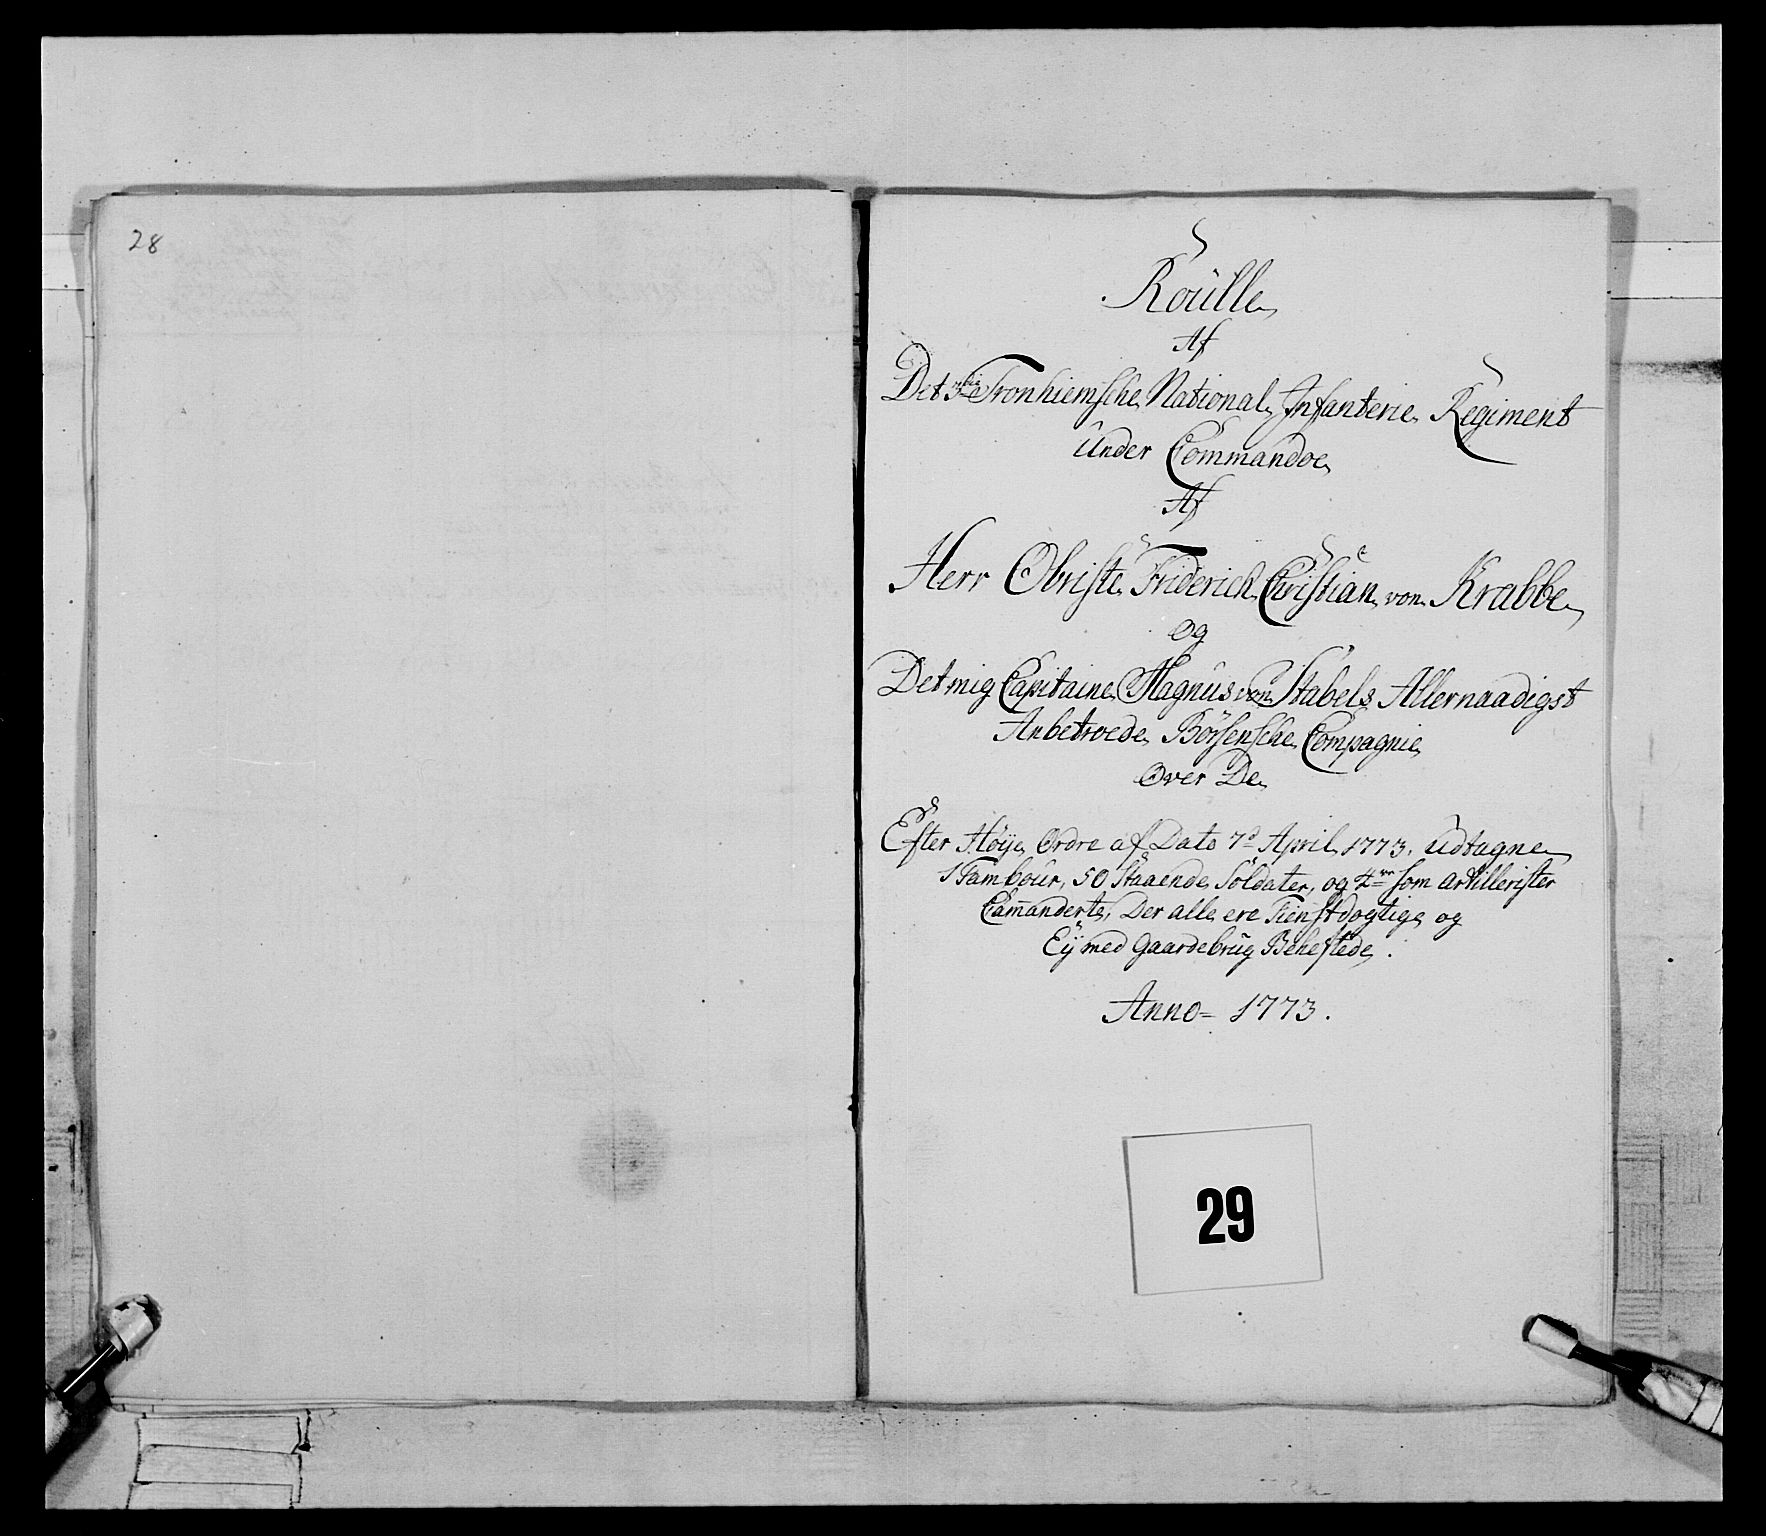 28
Roülle
Af
Det 3die Tronhiemsche National Infanterie Regiment
Under Commandoe
Af
Herr Obriste Friderich Christian von Krabbe
Og
Det mig Capitaine Magnus von Stabels Allernaadigst
Anbetroede Børsensche Compagnie
Over De
Efter Høye Ordre af Dato 7d April 1773, Udtagne
1 Tambour, 50 Staaende Soldater, og 4re som Artillerister
Comanderte, Der alle ere Tienstdogtige og
Eÿ med Gaardebrug Beheftede.
Anno= 1773.
29